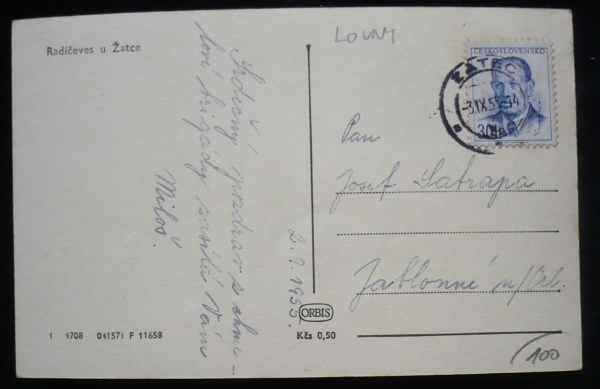 Radíčeves u Žatce
LOUNY
ČESKOSLOVENSKO
ŽATEC
-3.IX.55-14
30
Srdečný pozdrav z chme-
lové brigády zasílá Vám
Miloš.
2.9.1955.
Pan
Josef Satrapa
Jablonné n/Orl.
1 4708 041571 F 11658
ORBIS
Kčs 0,50
/100